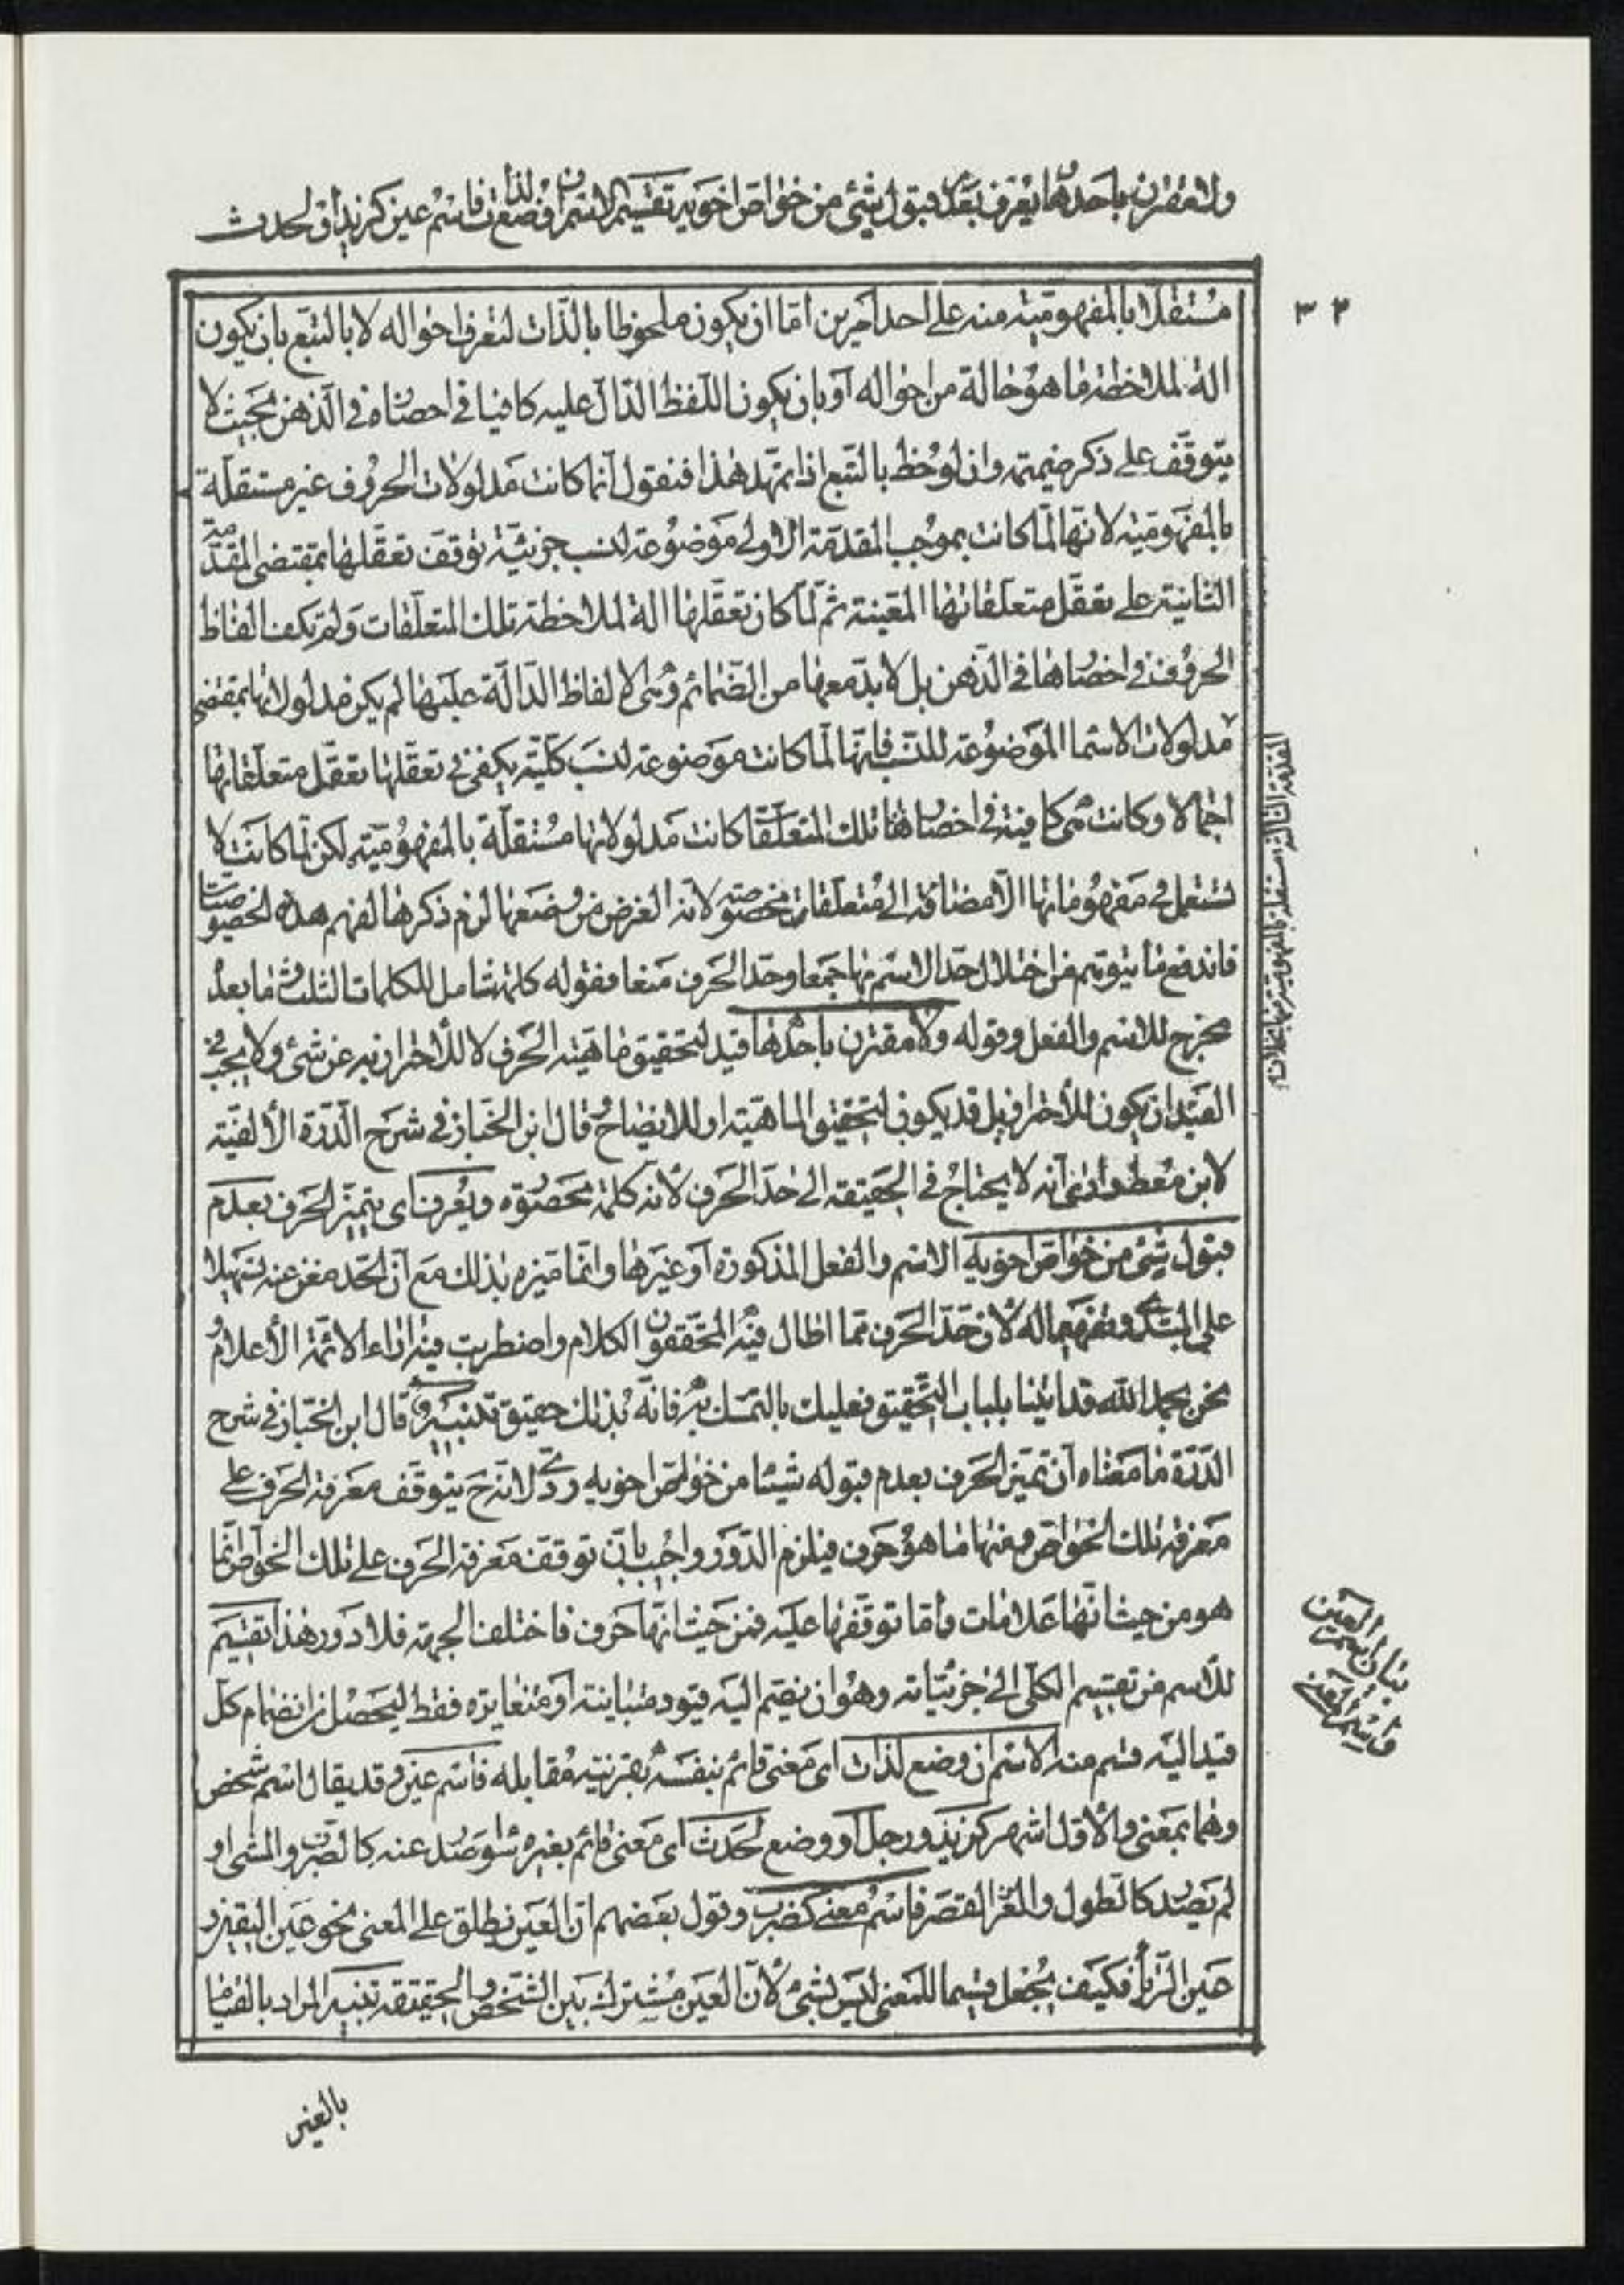 ولا مقترن باحدها ويعرف بعدم قبول شئ من خواص اخويه تقسيم الاسم ان وضع لذات فاسم عين كزيد او لحدث
٣٢
مستقلا بالمفهومية منه على احد امرين اما ان يكون ملحوظا بالذات لتعرف احواله لا بالتبع بان يكون
الة لملاحظة ما هو حالة من احواله او بان يكون اللفظ الدال عليه كافيا في احضاره في الذهن بحيث لا
يتوقف على ذكر ضميمة وان لوحظ بالتبع اذا تمهد هذا فنقول انما كانت مدلولات الحروف غير مستقلة
بالمفهومية لانها لما كانت بموجب المقدمة الاولى موضوعة لنسب جزئية توقف تعقلها بمقتضى المقدمة
الثانية على تعقل متعلقاتها المعينة ثم لما كان تعقلها الة لملاحظة تلك المتعلقات ولم تكف الفاظ
الحروف في احضارها في الذهن بل لا بد معها من الضمائم وهي الالفاظ الدالة عليها لم يكن مدلولاتها بمقتضى
مدلولات الاسما الموضوعة للنسب فانها لما كانت موضوعة لنسب كلية يكفي في تعقلها تعقل متعلقاتها
اجمالا وكانت هي كافية في احضار هذا تلك المتعلقا كانت مدلولاتها مستقلة بالمفهومية لكن لما كانت لا
تستعمل في مفهوماتها الا مضافة الى متعلقات مخصوصة لانه الغرض من وضعها لزم ذكرها لفهم هذه الخصوصيات
فاندفع ما يتوهم من اختلال حد الاسم بها جمعا وحد الحرف منعا فقوله كلمة شامل للكلمات الثلث وما بعد
مخرج للاسم والفعل وقوله ولا مقترن باحدها قيد لتحقيق ماهية الحرف لا للاحتراز به عن شئ ولا يجب في
القيد ان يكون للاحتراز بل قد يكون لتحقيق الماهية او للايضاح قال ابن الخباز في شرح الدرة الالفية
لابن معط وادعى انه لا يحتاج في الحقيقة الى حد الحرف لانه كلمة محصورة ويعرف اى يتميز الحرف بعدم
قبول شئ من خواص اخويه الاسم والفعل المذكورة او غيرها وانما ميزه بذلك مع ان الحد مغن عنه تسهيلا
على المبتدى وتفهيما له لان حد الحرف مما اطال فيه المحققون الكلام واضطربت فيه اراء الائمة الاعلام و
نحن بحمد الله قد اتينا بلباب التحقيق فعليك بالتمسك به فانه بذلك حقيق تنبيه قال ابن الخباز في شرح
الدرة ما معناه ان تميز الحرف بعدم قبوله شيئا من خواص اخويه ردى لانه ح يتوقف معرفة الحرف على
معرفة تلك الخواص ومنها ما هو حرف فيلزم الدور واجيب بان توقف معرفة الحرف على تلك الخواص انما
هو من حيث انها علامات واما توقفها عليه فمن حيث انها حرف فاختلف الجهة فلا دور هذا تقسيم
للاسم من تقسيم الكلى الى جزئياته وهو ان يضم اليه قيود متباينة او متغايرة فقط ليحصل بانضمام كل
قيد اليه قسم منه الاسم ان وضع لذات اى معنى قائم بنفسه بقرينة مقابله فاسم عين وقد يقال اسم شخص
وهما بمعنى والاول اشهر كزيد ورجل او وضع لحدث اى معنى قائم بغيره سوا صدر عنه كالضرب والمشى او
لم يصدر كالطول والقصر فاسم معنى كضرب وقول بعضهم ان العين يطلق على المعنى نحو عين اليقين و
عين الربا فكيف يجعل قسيما للمعنى ليس بشئ لان العين مشترك بين الشخص والحقيقة تنبيه المراد بالقيام
بيان اسم العين
واسم المعنى
بالغير